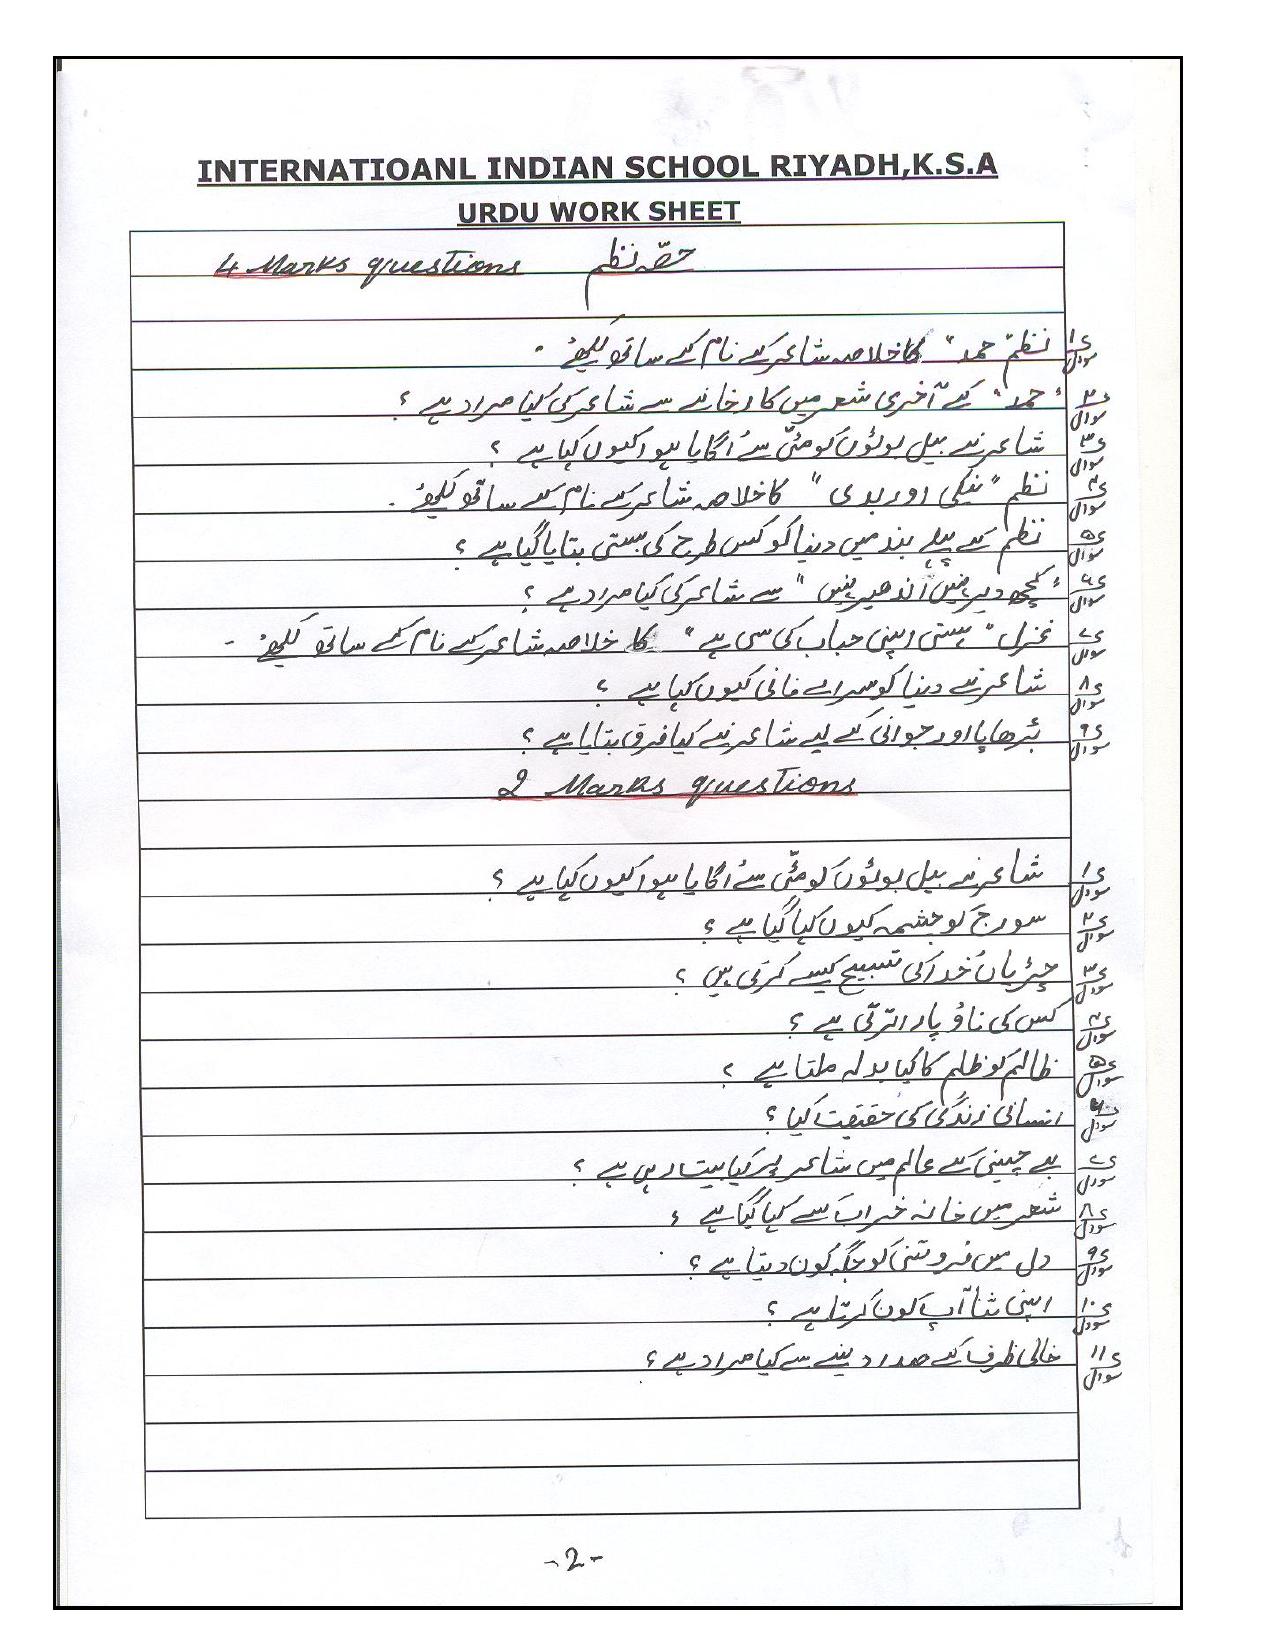 INTERNATIOANL INDIAN SCHOOL RIYADH,K.S.A
URDU WORK SHEET
حصّہ نظم 4 Marks questions
سوال ۱؎ نظم "حمد" کا خلاصہ شاعر کے نام کے ساتھ لکھئے۔
سوال ۲؎ "حمد" کے آخری شعر میں کارخانے سے شاعر کی کیا مراد ہے؟
سوال ۳؎ شاعر نے بیل بوٹوں کو مٹّی سے اُگایا ہوا کیوں کہا ہے؟
سوال ۴؎ نظم "نیکی اور بدی" کا خلاصہ شاعر کے نام کے ساتھ لکھئے۔
سوال ۵؎ نظم کے پہلے بند میں دنیا کو کس طرح کی بستی بتایا گیا ہے؟
سوال ۶؎ "کچھ دیر نہیں اندھیر نہیں" سے شاعر کی کیا مراد ہے؟
سوال ۷؎ غزل "ہستی اپنی حباب کی سی ہے" کا خلاصہ شاعر کے نام کے ساتھ لکھئے۔
سوال ۸؎ شاعر نے دنیا کو سرائے فانی کیوں کہا ہے؟
سوال ۹؎ بڑھاپا اور جوانی کے لیے شاعر نے کیا فرق بتایا ہے؟
2 Marks questions
سوال ۱؎ شاعر نے بیل بوٹوں کو مٹّی سے اُگایا ہوا کیوں کہا ہے؟
سوال ۲؎ سورج کو چشمہ کیوں کہا گیا ہے؟
سوال ۳؎ چڑیاں خدا کی تسبیح کیسے کرتی ہیں؟
سوال ۴؎ کس کی ناؤ پار اترتی ہے؟
سوال ۵؎ ظالم کو ظلم کا کیا بدلہ ملتا ہے؟
سوال ۶؎ انسانی زندگی کی حقیقت کیا؟
سوال ۷؎ بے چینی کے عالم میں شاعر پر کیا بیت رہی ہے؟
سوال ۸؎ شعر میں خانہ خراب کسے کہا گیا ہے؟
سوال ۹؎ دل میں فروتنی کو جگہ کون دیتا ہے؟
سوال ۱۰؎ اپنی ثنا آپ کون کرتا ہے؟
سوال ۱۱؎ خالی ظرف کے صدا دینے سے کیا مراد ہے؟
-2-